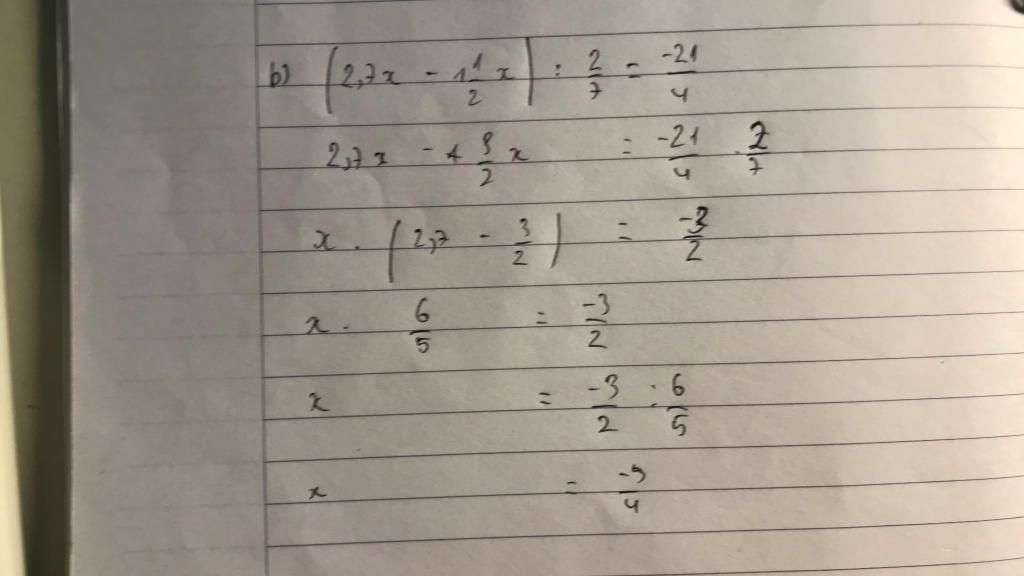 b) (2,7x - 1 1/2 x) : 2/7 = -21/4
2,7x - 3/2 x = -21/4 . 2/7
x . (2,7 - 3/2) = -3/2
x . 6/5 = -3/2
x = -3/2 : 6/5
x = -5/4